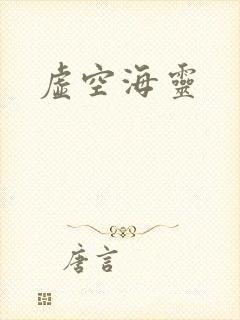 虛空海靈
唐言